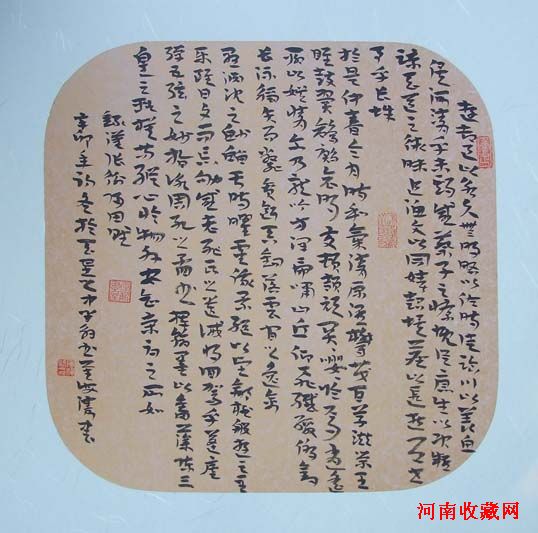 遊都邑以永久無明略以佐時徒臨川以羨魚
俟河清乎未期感蔡子之慷慨從唐生以決疑
諒天道之微昧追漁父以同嬉超埃塵以遐逝與世
事乎長辭
於是仲春令月時和氣清原隰鬱茂百草滋榮王
雎鼓翼鶬鶊哀鳴交頸頡頏關嚶於焉逍遙
聊以娛情爾乃龍吟方澤虎嘯山丘仰飛纖繳俯釣
長流觸矢而斃貪餌吞鉤落雲間之逸禽
懸淵沉之魦鰡于時曜靈俄景繼以望舒極般遊之至
樂雖日夕而忘劬感老氏之遺誡將迴駕乎蓬廬
彈五弦之妙指詠周孔之圖書揮翰墨以奮藻陳三
皇之軌模苟縱心於物外安知榮辱之所如
錄漢張衡歸田賦
辛卯年
河南收藏网